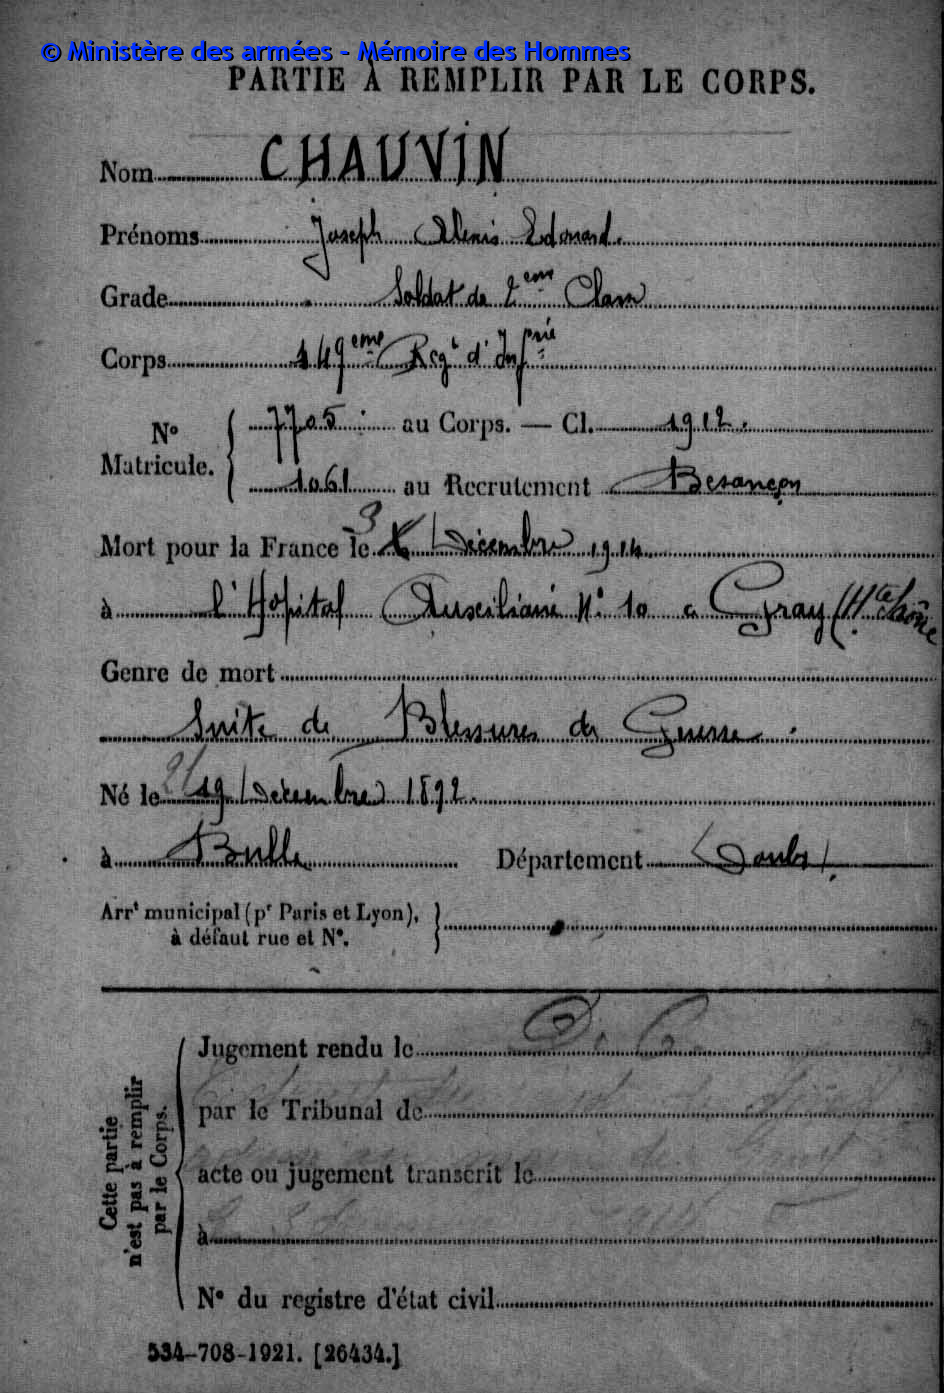 © Ministère des armées - Mémoire des Hommes
PARTIE À REMPLIR PAR LE CORPS.
Nom CHAUVIN
Prénoms Joseph Alexis Edouard.
Grade Soldat de 2eme Classe
Corps 149eme Regt d'Infrie
No Matricule. { 7705 au Corps. — Cl. 1912.
1061 au Recrutement Besançon
Mort pour la France le 3 Décembre 1914
à l'Hopital Auxiliaire No 10 a Gray (Hte Saône
Genre de mort
Suite de Blessures de Guerre.
Né le 21 19 Décembre 1892.
à Bulle Département Doubs.
Arrt municipal (pr Paris et Lyon),
à défaut rue et No.
Cette partie
n'est pas à remplir
par le Corps.
Jugement rendu le D. C.
par le Tribunal de
acte ou jugement transcrit le
à
No du registre d'état civil
534-708-1921. [26434.]